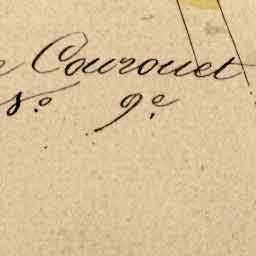 Courouet
N° 9e